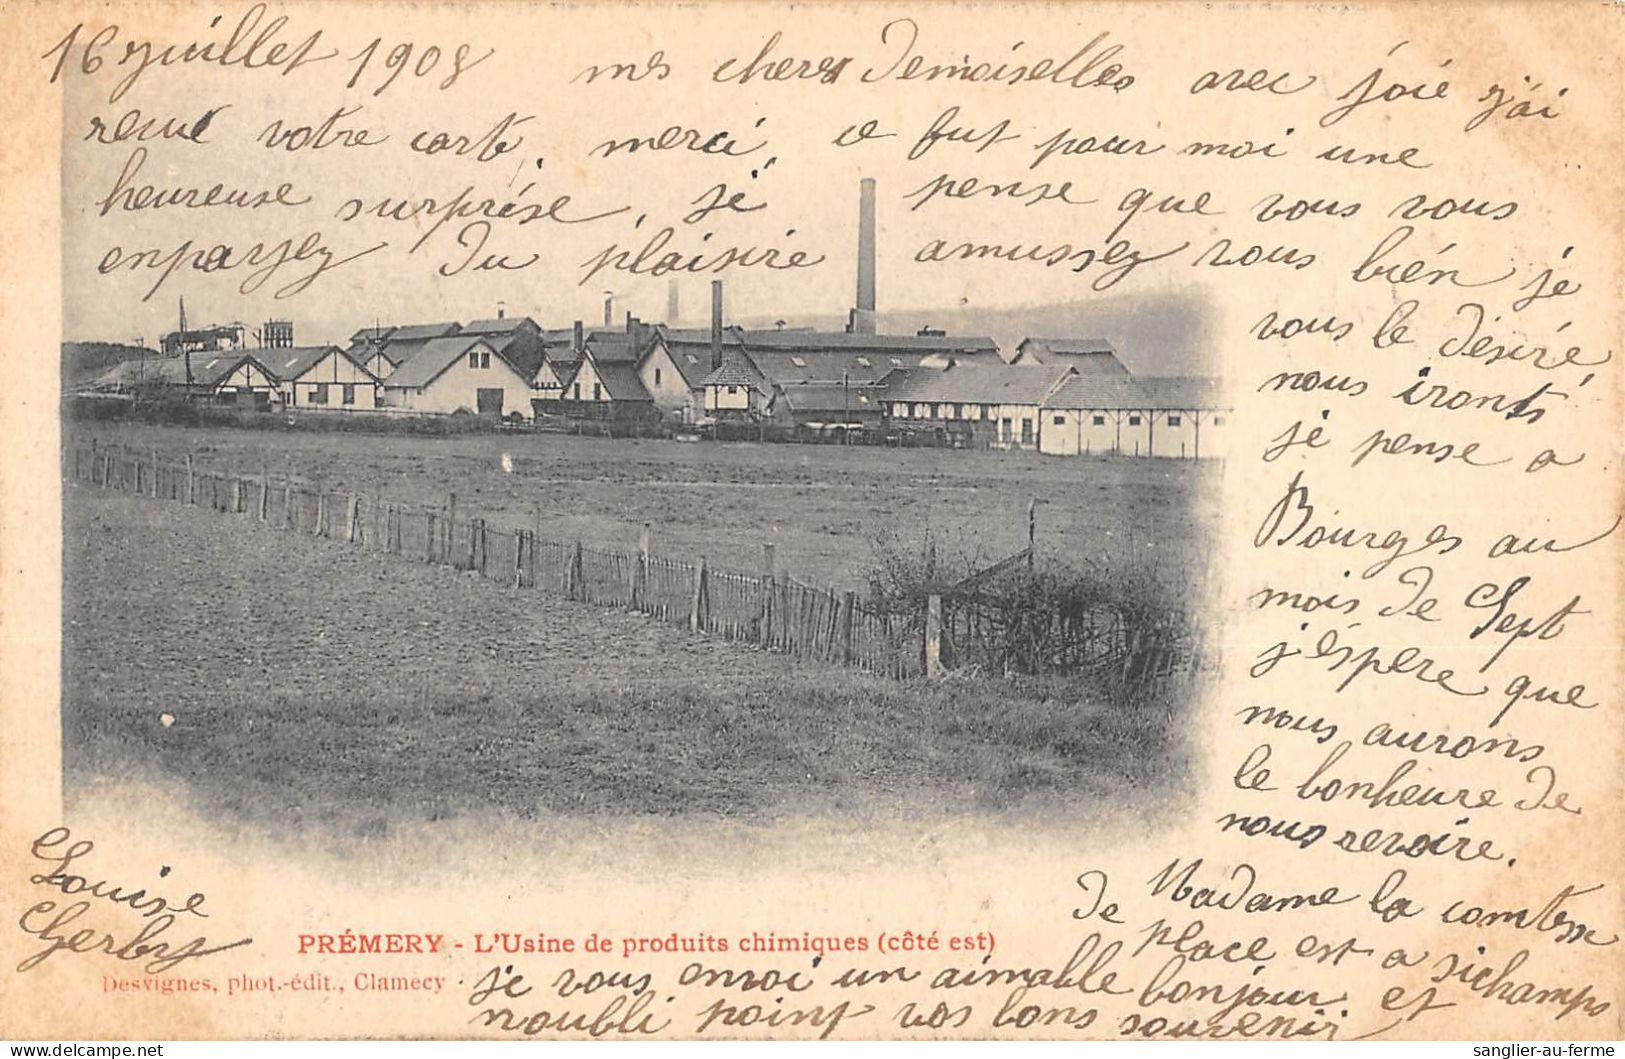 16 juillet 1908 mes cheres Demoiselles avec joié j'ai
recue votre carte, merci, ce fut pour moi une
heureuse surprise, je pense que vous vous
en passez du plaisire amussez vous bién je
vous le désiré,
nous ironts
je pense a
Bourges au
mois de Sept
j'éspère que
nous aurons
le bonheure de
nous revoire.
Madame la comtesse
de place est a sichamps
je vous envoi un aimable bonjour et
n'oubli point vos bons souvenir
Louise
Gerby
PRÉMERY - L'Usine de produits chimiques (côté est)
Desvignes, phot.-édit., Clamecy
sanglier-au-ferme